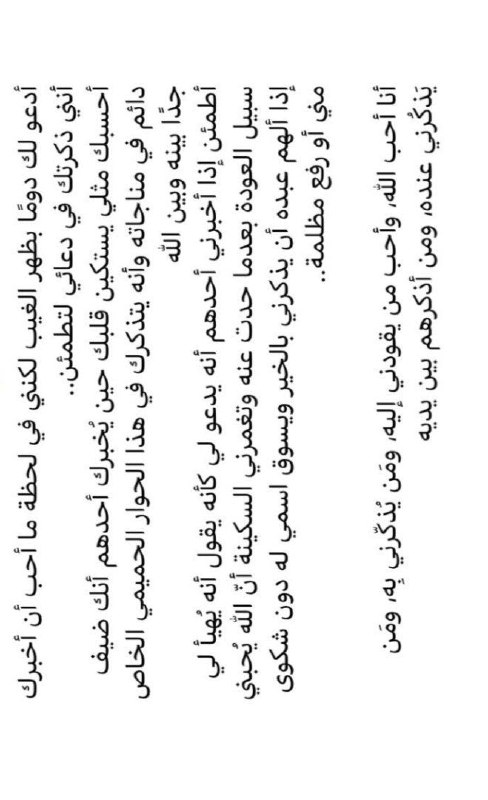 أدعو لك دومًا بظهر الغيب لكنني في لحظة ما أحب أن أخبرك
أنني ذكرتك في دعائي لتطمئن..
أحسبك مثلي يستكين قلبك حين يُخبرك أحدهم أنك ضيف
دائم في مناجاته وأنه يتذكرك في هذا الحوار الحميمي الخاص
جدًا بينه وبين الله
أطمئن إذا أخبرني أحدهم أنه يدعو لي كأنه يقول أنه يُهيأ لي
سبيل العودة بعدما حدت عنه وتغمرني السكينة أنّ الله يُحبني
إذا ألهم عبده أن يذكرني بالخير ويسوق اسمي له دون شكوى
مني أو رفع مظلمة..
أنا أحب الله، وأحب من يقودني إليه، ومَن يُذكّرني بِه، ومَن
يَذكُرني عنده، ومن أذكرهم بين يديه